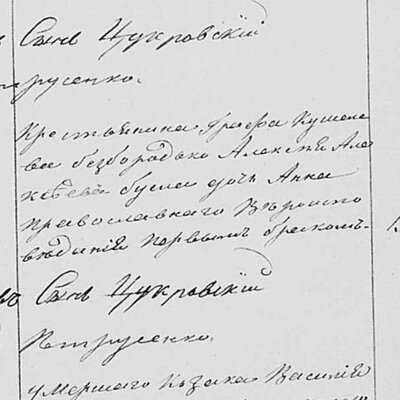 Сынъ Цукровскій
трусенко.
Крестьянина Графа Кушеле
ва безбородько Алексѣя Але
ксѣева дочь Анна
православнаго Вѣроиспо
вѣданія первымъ бракомъ.
Сынъ Цукровскій
Петрусенко.
умершаго Козака Василія